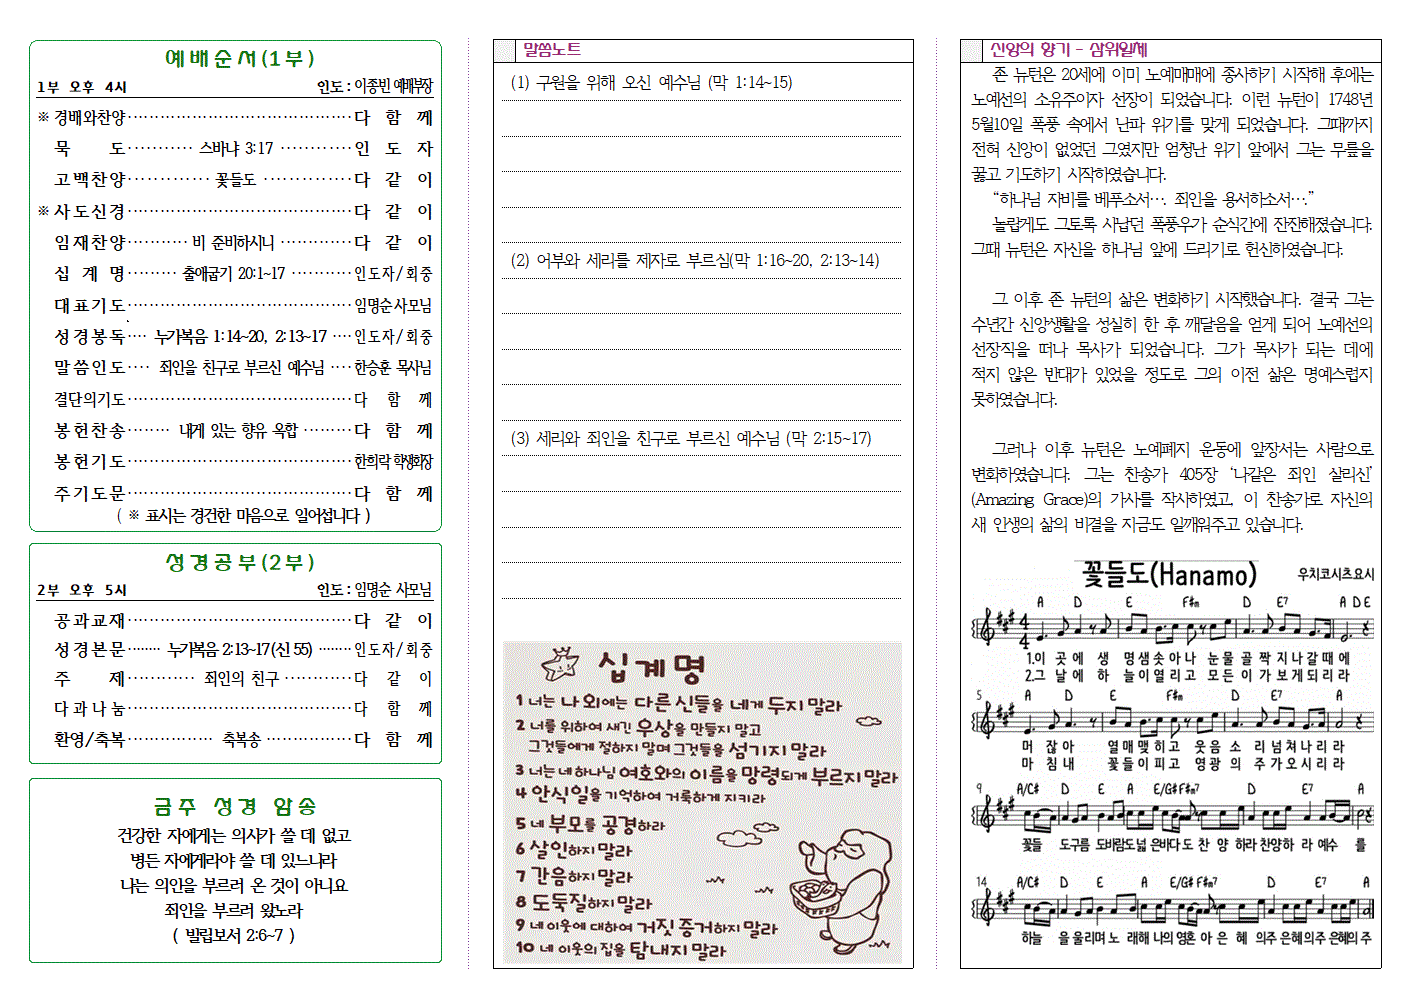 예배순서(1부)
1부 오후 4시 인도 : 이종빈 예배부장
※ 경배와찬양 다 함 께
묵 도 스바냐 3:17 인 도 자
고백찬양 꽃들도 다 같 이
※ 사도신경 다 같 이
임재찬양 비 준비하시니 다 같 이
십 계 명 출애굽기 20:1~17 인도자/회중
대표기도 임명순 사모님
성경봉독 누가복음 1:14~20, 2:13~17 인도자/회중
말씀인도 죄인을 친구로 부르신 예수님 한승훈 목사님
결단의기도 다 함 께
봉헌찬송 내게 있는 향유 옥합 다 함 께
봉헌기도 한희락 학생회장
주기도문 다 함 께
( ※ 표시는 경건한 마음으로 일어섭니다 )
성경공부(2부)
2부 오후 5시 인도 : 임명순 사모님
공과교재 다 같 이
성경본문 누가복음 2:13~17(신 55) 인도자/회중
주 제 죄인의 친구 다 같 이
다과나눔 다 함 께
환영/축복 축복송 다 함 께
금주 성경 암송
건강한 자에게는 의사가 쓸 데 없고
병든 자에게라야 쓸 데 있느니라
나는 의인을 부르러 온 것이 아니요
죄인을 부르러 왔노라
( 빌립보서 2:6~7 )
말씀노트
(1) 구원을 위해 오신 예수님 (막 1:14~15)
(2) 어부와 세리를 제자로 부르심(막 1:16~20, 2:13~14)
(3) 세리와 죄인을 친구로 부르신 예수님 (막 2:15~17)
십계명
1 너는 나 외에는 다른 신들을 네게 두지 말라
2 너를 위하여 새긴 우상을 만들지 말고
그것들에게 절하지 말며 그것들을 섬기지 말라
3 너는 네 하나님 여호와의 이름을 망령되게 부르지 말라
4 안식일을 기억하여 거룩하게 지키라
5 네 부모를 공경하라
6 살인하지 말라
7 간음하지 말라
8 도둑질하지 말라
9 네 이웃에 대하여 거짓 증거하지 말라
10 네 이웃의 집을 탐내지 말라
신앙의 향기 - 삼위일체
존 뉴턴은 20세에 이미 노예매매에 종사하기 시작해 후에는
노예선의 소유주이자 선장이 되었습니다. 이런 뉴턴이 1748년
5월10일 폭풍 속에서 난파 위기를 맞게 되었습니다. 그때까지
전혀 신앙이 없었던 그였지만 엄청난 위기 앞에서 그는 무릎을
꿇고 기도하기 시작하였습니다.
“하나님 자비를 베푸소서…. 죄인을 용서하소서….”
놀랍게도 그토록 사납던 폭풍우가 순식간에 잔잔해졌습니다.
그때 뉴턴은 자신을 하나님 앞에 드리기로 헌신하였습니다.
그 이후 존 뉴턴의 삶은 변화하기 시작했습니다. 결국 그는
수년간 신앙생활을 성실히 한 후 깨달음을 얻게 되어 노예선의
선장직을 떠나 목사가 되었습니다. 그가 목사가 되는 데에
적지 않은 반대가 있었을 정도로 그의 이전 삶은 명예스럽지
못하였습니다.
그러나 이후 뉴턴은 노예폐지 운동에 앞장서는 사람으로
변화하였습니다. 그는 찬송가 405장 ‘나같은 죄인 살리신’
(Amazing Grace)의 가사를 작사하였고, 이 찬송가로 자신의
새 인생의 삶의 비결을 지금도 일깨워주고 있습니다.
꽃들도(Hanamo)
우치코시츠요시
A D E F#m D E7 A D E
1.이 곳 에 생 명샘 솟아나 눈물 골 짝 지나갈 때 에
2.그 날 에 하 늘이 열리고 모든 이 가 보게되리라
5 A D E F#m D E7 A
머 잖아 열매맺히고 웃음 소 리 넘쳐나리라
마 침내 꽃들이피고 영광 의 주가오시리라
9 A/C# D E A E/G# F#m7 D E7 A
꽃들 도구름 도바람도넓 은바다도 찬 양 하라 찬양하 라 예수 를
14 A/C# D E A E/G# F#m7 D E7 A
하늘 을 울리며 노 래해 나의 영혼 아 은 혜 의주 은혜의주 은혜의 주